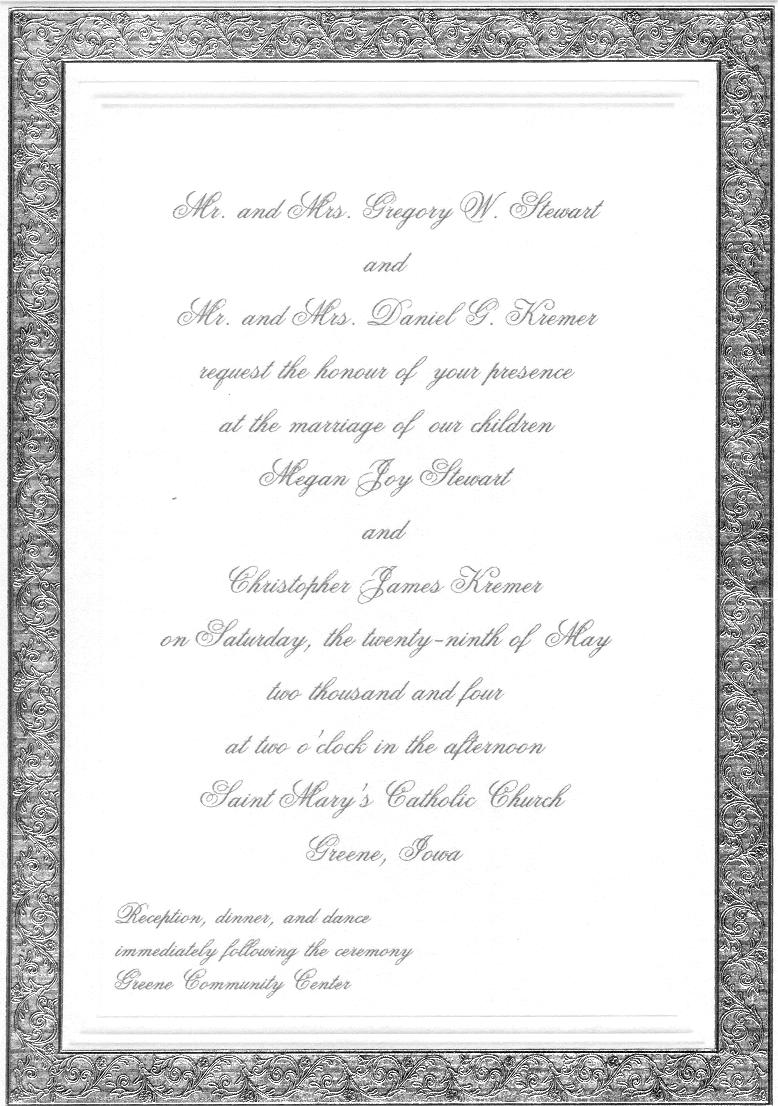 Mr. and Mrs. Gregory W. Stewart
and
Mr. and Mrs. Daniel G. Kremer
request the honour of your presence
at the marriage of our children
Megan Joy Stewart
and
Christopher James Kremer
on Saturday, the twenty-ninth of May
two thousand and four
at two o'clock in the afternoon
Saint Mary's Catholic Church
Greene, Iowa
Reception, dinner, and dance
immediately following the ceremony
Greene Community Center